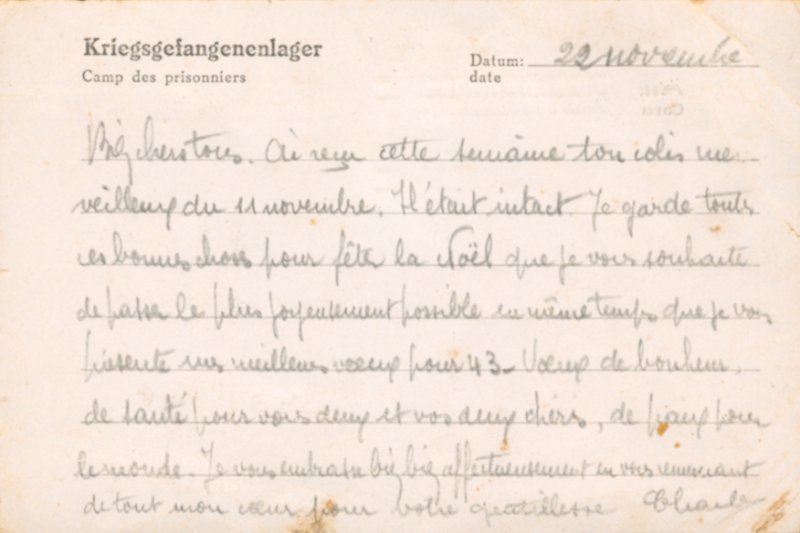 Kriegsgefangenenlager
Camp des prisonniers
Datum: 22 novembre
date
Bien chers tous. Ai reçu cette semaine ton colis mer-
veilleux du 11 novembre. Il était intact. Je garde toutes
ces bonnes choses pour fêter la Noël que je vous souhaite
de passer le plus joyeusement possible en même temps que je vous
présente mes meilleurs vœux pour 43 - Vœux de bonheur,
de santé pour vous deux et vos deux chéris, de paix pour
le monde. Je vous embrasse affectueusement en vous remerciant
de tout mon cœur pour votre gentillesse Charles